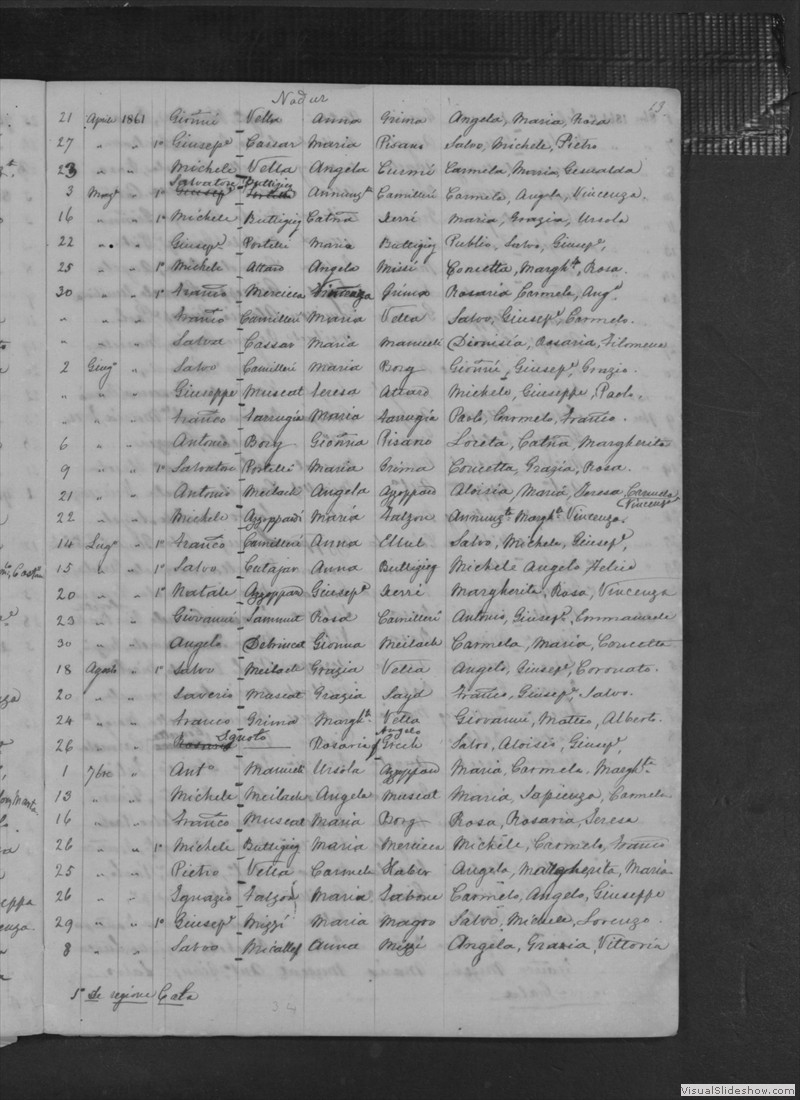 Nadur
13
21 April 1861 Gioñni Vella Anna Grima Angela, Maria, Rosa
27 " " 1º Giusepe Cassar Maria Pisano Salvo, Michele, Pietro
23 " " Michele Vella Angela Curmi Carmela, Maria, Gesualda
Salvatore Buttigieg
3 Magº " 1º Annunzta Camilleri Carmela, Angela, Vincenza.
16 " " 1º Michele Buttigieg Catña Xerri Maria, Grazia, Ursola
22 " " Giusepe Portelli Maria Buttigieg Publio, Salvo, Giusepe,
25 " " 1º Michele Attard Angela Missi Concetta, Marghta, Rosa.
30 " " 1º Franco Mercieca Vincenza Grima Rosaria Carmela, Anga
" " " Franco Camilleri Maria Vella Salvo, Giusepe, Carmelo.
" " " Salvo Cassar Maria Manueli Dionisia, Rosaria, Filomena
2 Giugº " Salvo Camilleri Maria Borg Gioñni, Giusepe, Grazio.
" " " Giuseppe Muscat Teresa Attard Michele, Giuseppe, Paolo.
" " " Franco Farrugia Maria Farrugia Paolo, Carmelo, Franco.
6 " " Antonio Borg Gioñna Pisano Loreta, Catña, Margherita
9 " " 1º Salvatore Portelli Maria Grima Concetta, Grazia, Rosa.
21 " " Antonio Meilach Angela Azzoppard Aloisia, Maria, Teresa, Carmela
Vincenza
22 " " Michele Azzoppardi Maria Falzon Annunzta Marghta Vincenza.
14 Lugº " 1º Franco Camilleri Anna Ellul Salvo, Michele, Giusepe,
15 " " 1º Salvo Cutajar Anna Buttigieg Michele Angelo, Felice
20 " " 1º Natale Azzoppard Giusepa Xerri Margherita, Rosa, Vincenza
23 " " Giovanni Sammut Rosa Camilleri Antonio, Giusepe, Emmanuele
30 " " Angelo Debrincat Gionna Meilach Carmela, Maria, Concetta
18 Agosto " 1º Salvo Meilach Grazia Vella Angelo, Giusepe, Coronato.
20 " " Saverio Muscat Grazia Sayd Franco, Giusepe, Salvo.
24 " " Franco Grima Marghta Vella Giovanni, Matteo, Alberto.
Ignoto Angelo
26 " " Rosaria Grech Salvo, Aloisio, Giusepe,
1 7bre " Anto Manueli Ursola Azzoppard Maria, Carmela, Marghta
13 " " Michele Meilach Angela Muscat Maria, Sapienza, Carmela
16 " " Franco Muscat Maria Borg Rosa, Rosaria, Teresa
26 " " 1º Michele Buttigieg Maria Mercieca Michele, Carmelo, Franco
25 " " Pietro Vella Carmela Haber Angela, Margherita, Maria
26 " " Ignazio Falzon Maria Tabone Carmelo, Angelo, Giuseppe
29 " " 1º Giusepe Mizzi Maria Magro Salvo, Michele, Lorenzo.
8 " " Salvo Micallef Anna Mizzi Angela, Grazia, Vittoria
1º de regione Cala
VisualSlideshow.com